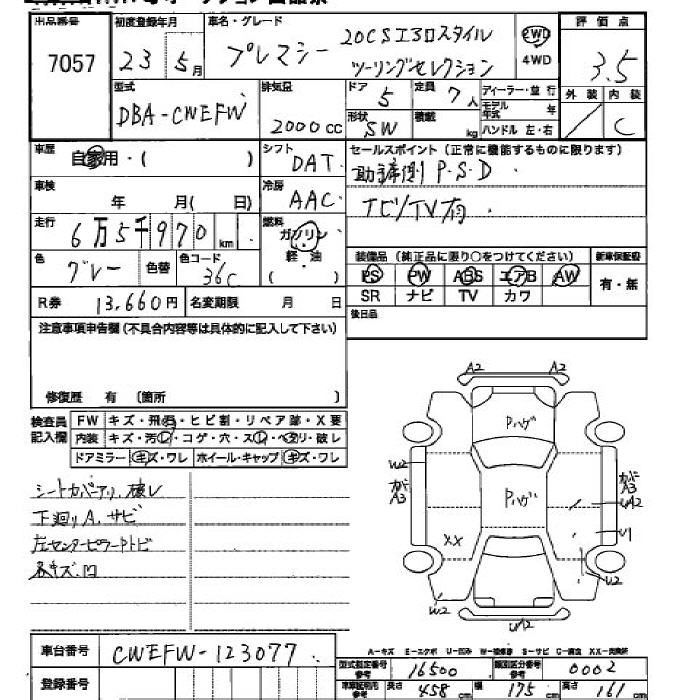 出品番号 初度登録年月 車名・グレード 評価点
7057 23年5月 プレマシー 20CSエアロスタイル ツーリングセレクション 2WD 4WD 3.5
型式 排気量 ドア 定員 ディーラー・並行 外装 内装
DBA-CWEFW 2000cc 5 7人 モデル年式 年
形状 SW 積載 kg ハンドル 左・右 C
車歴 自家用・( ) シフト DAT セールスポイント(正常に機能するものに限ります)
助手席側P.S.D
車検 年 月( 日) 冷房 AAC
ナビ/TV有
走行 6万5千970km 燃料 ガソリン 軽・油 ( )
色 グレー 色替 色コード 36C
装備品(純正品に限り○をつけてください) 新車保証書
PS PW ABS エアB AW 有・無
SR ナビ TV カワ
R券 13,660円 名変期限 月 日
後日品
注意事項申告欄(不具合内容等は具体的に記入して下さい)
修復歴 有 〔箇所 〕
検査員記入欄 FW キズ・飛石・ヒビ割・リペア跡・X要
内装 キズ・汚レ・コゲ・穴・スレ・ヘタリ・破レ
ドアミラー キズ・ワレ ホイール・キャップ キズ・ワレ
シートカバーアリ. 破レ
下廻りA. サビ
左センターピラーPトビ
各キズ.凹
A2 A2
Pハゲ
W2
A3
Pハゲ
A3
UA2
XX
U1
U2
W2
UA2
A-キズ E-エクボ U-凹み W-補修跡 S-サビ C-腐食 XX-交換済
車台番号 CWEFW-123077
型式指定番号 参考 16500 類別区分番号 参考 0002
登録番号
車検証明用 参考 長さ 458cm 幅 175cm 高さ 161cm